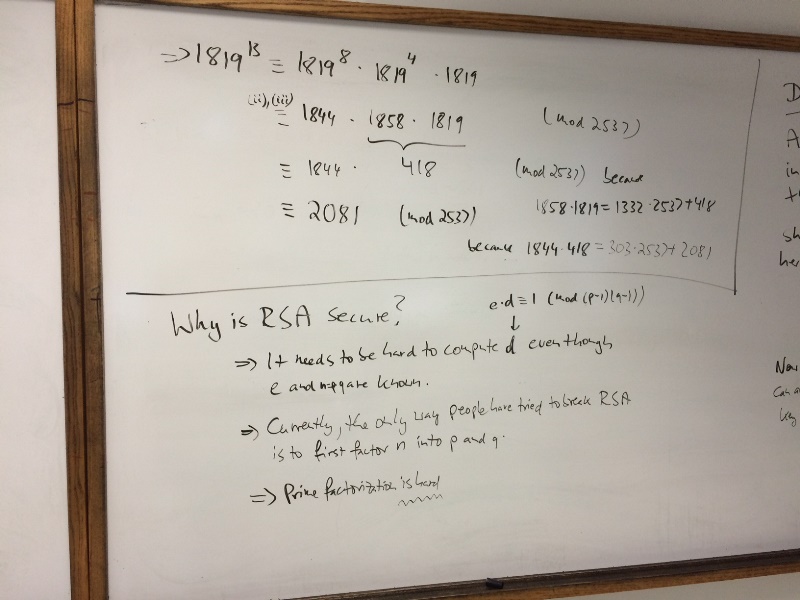 ⇒ 1819^13 ≡ 1819^8 · 1819^4 · 1819
(ii),(iii) ≡ 1844 · 1858 · 1819 (mod 2537)
≡ 1844 · 418 (mod 2537) because
1858·1819 = 1332·2537+418
≡ 2081 (mod 2537)
because 1844·418 = 303·2537+2081
Why is RSA secure?
e·d ≡ 1 (mod (p-1)(q-1))
↓
⇒ It needs to be hard to compute d even though
e and n are known.
⇒ Currently, the only way people have tried to break RSA
is to first factor n into p and q.
⇒ Prime factorization is hard
D
A
in
t
sh
her
Now
can
key